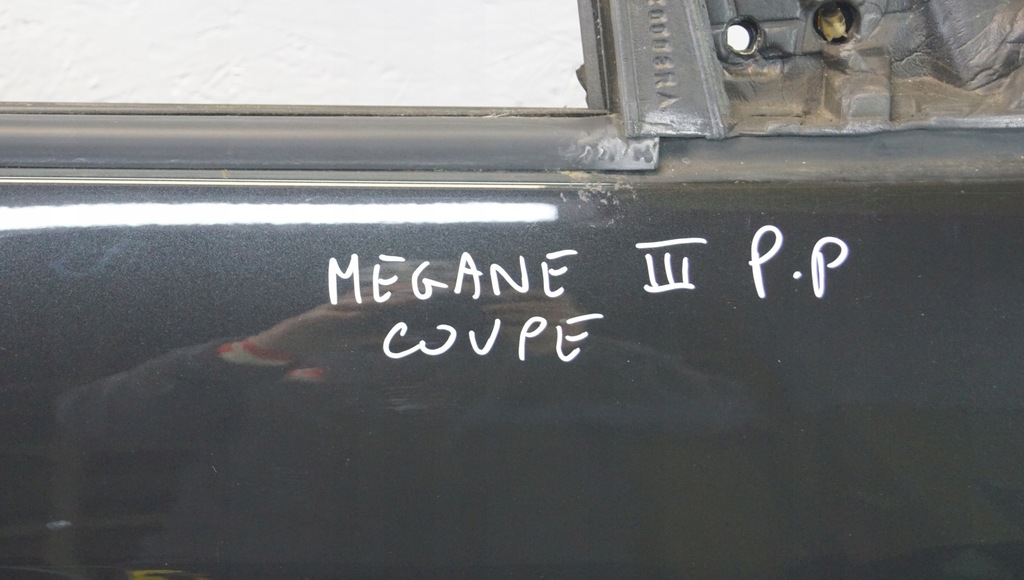 MEGANE III P.P
COUPE